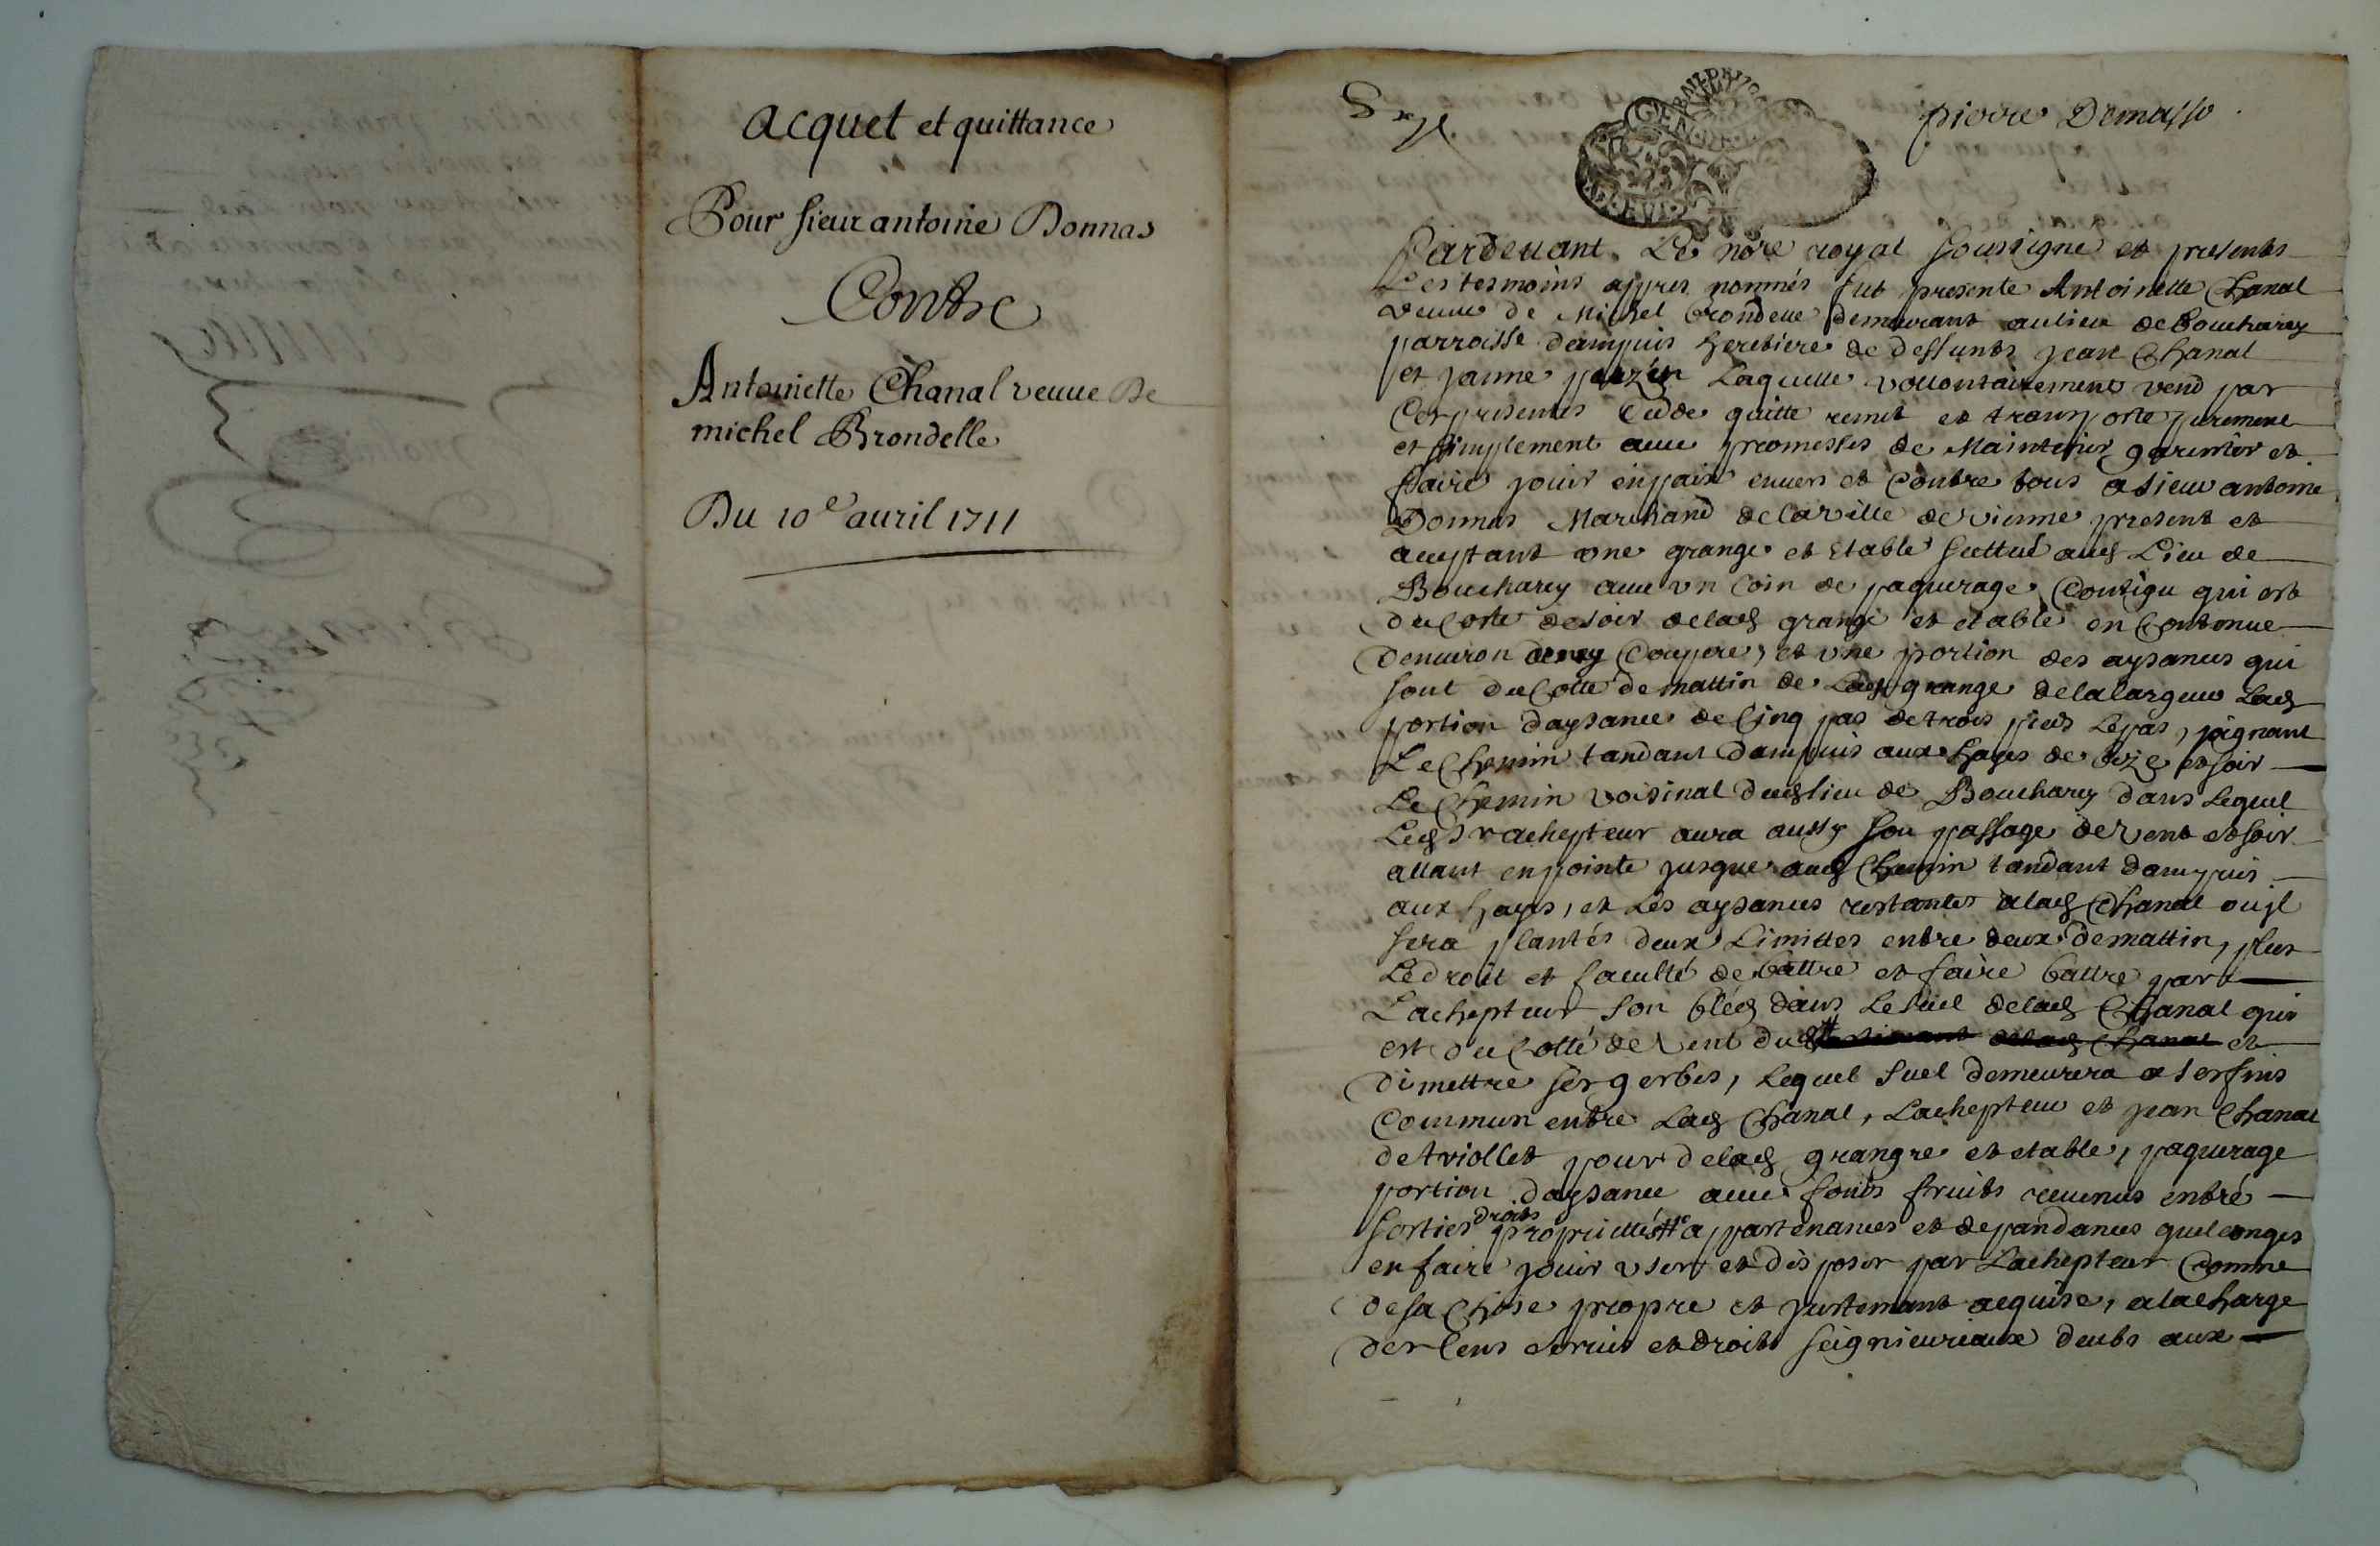 acquet et quittance
Pour sieur antoine Donnas
Contre
Antoinette Chanal veuue De
michel Brondelle
Du 10e auril 1711
pierre Demasso
GEN
Pardeuant Le nore royal soussigne et presents
Les tesmoins appres nommés fut presente Antoinette Chanal
veuue de Michel Brondelle demeurant au lieu de Boucharey
parroisse dampuis heretiere de deffunts jean Chanal
et janne Laquelle vollontairement vend par
Ces presentes Cedde quitte remet et transporte purement
et simplement auec promesses de Maintenir garentir et
faire jouir en paix enuers et Contre tous a sieur antoine
Donnas Marchand de la ville de vienne present et
acceptant vne grange et Etable scittué aud Lieu de
Boucharey auec vn Coin de paquerage Contigu qui est
du Coste de soir de lad grange et etable en Contenue
denuiron demy Couppee, et vne portion des aysances qui
sont du Cotté de mattin de Lad grange de la largeur Lad
portion daysance de Cinq pas de trois pieds Le pas, joignant
Le Chemin tandant dampuis aux hayes de bize et soir
Le Chemin voisinal dud lieu de Boucharey dans Lequel
Led sr achepteur aura aussy son passage de vent et soir
allant en pointe jusque aud Chemin tandant dampuis
aux hayes, et Les aysances restantes a lad Chanal ou jl
sera plantés deux Limittes entre deux de mattin, plus
Le droit et faculté de battre et faire battre par
Lachepteur son bled dans Le suel de lad Chanal qui
est du Cotté de vent du de lad Chanal et
di mettre ses gerbes, Lequel suel demeurera a ses fins
Commun entre Lad Chanal, Lachepteur et jean Chanal
de triollet pour de lad grangre et etable, paquerage
portion daysance auec fonds fruits reuenus entré
sorties droits propriettés appartenances et depandances quelconqes
en faire jouir vser et disposer par Lachepteur Comme
de sa Chose propre et justemant acquise, a la charge
des Cens seruis et droits seignieuriaux deubs aux